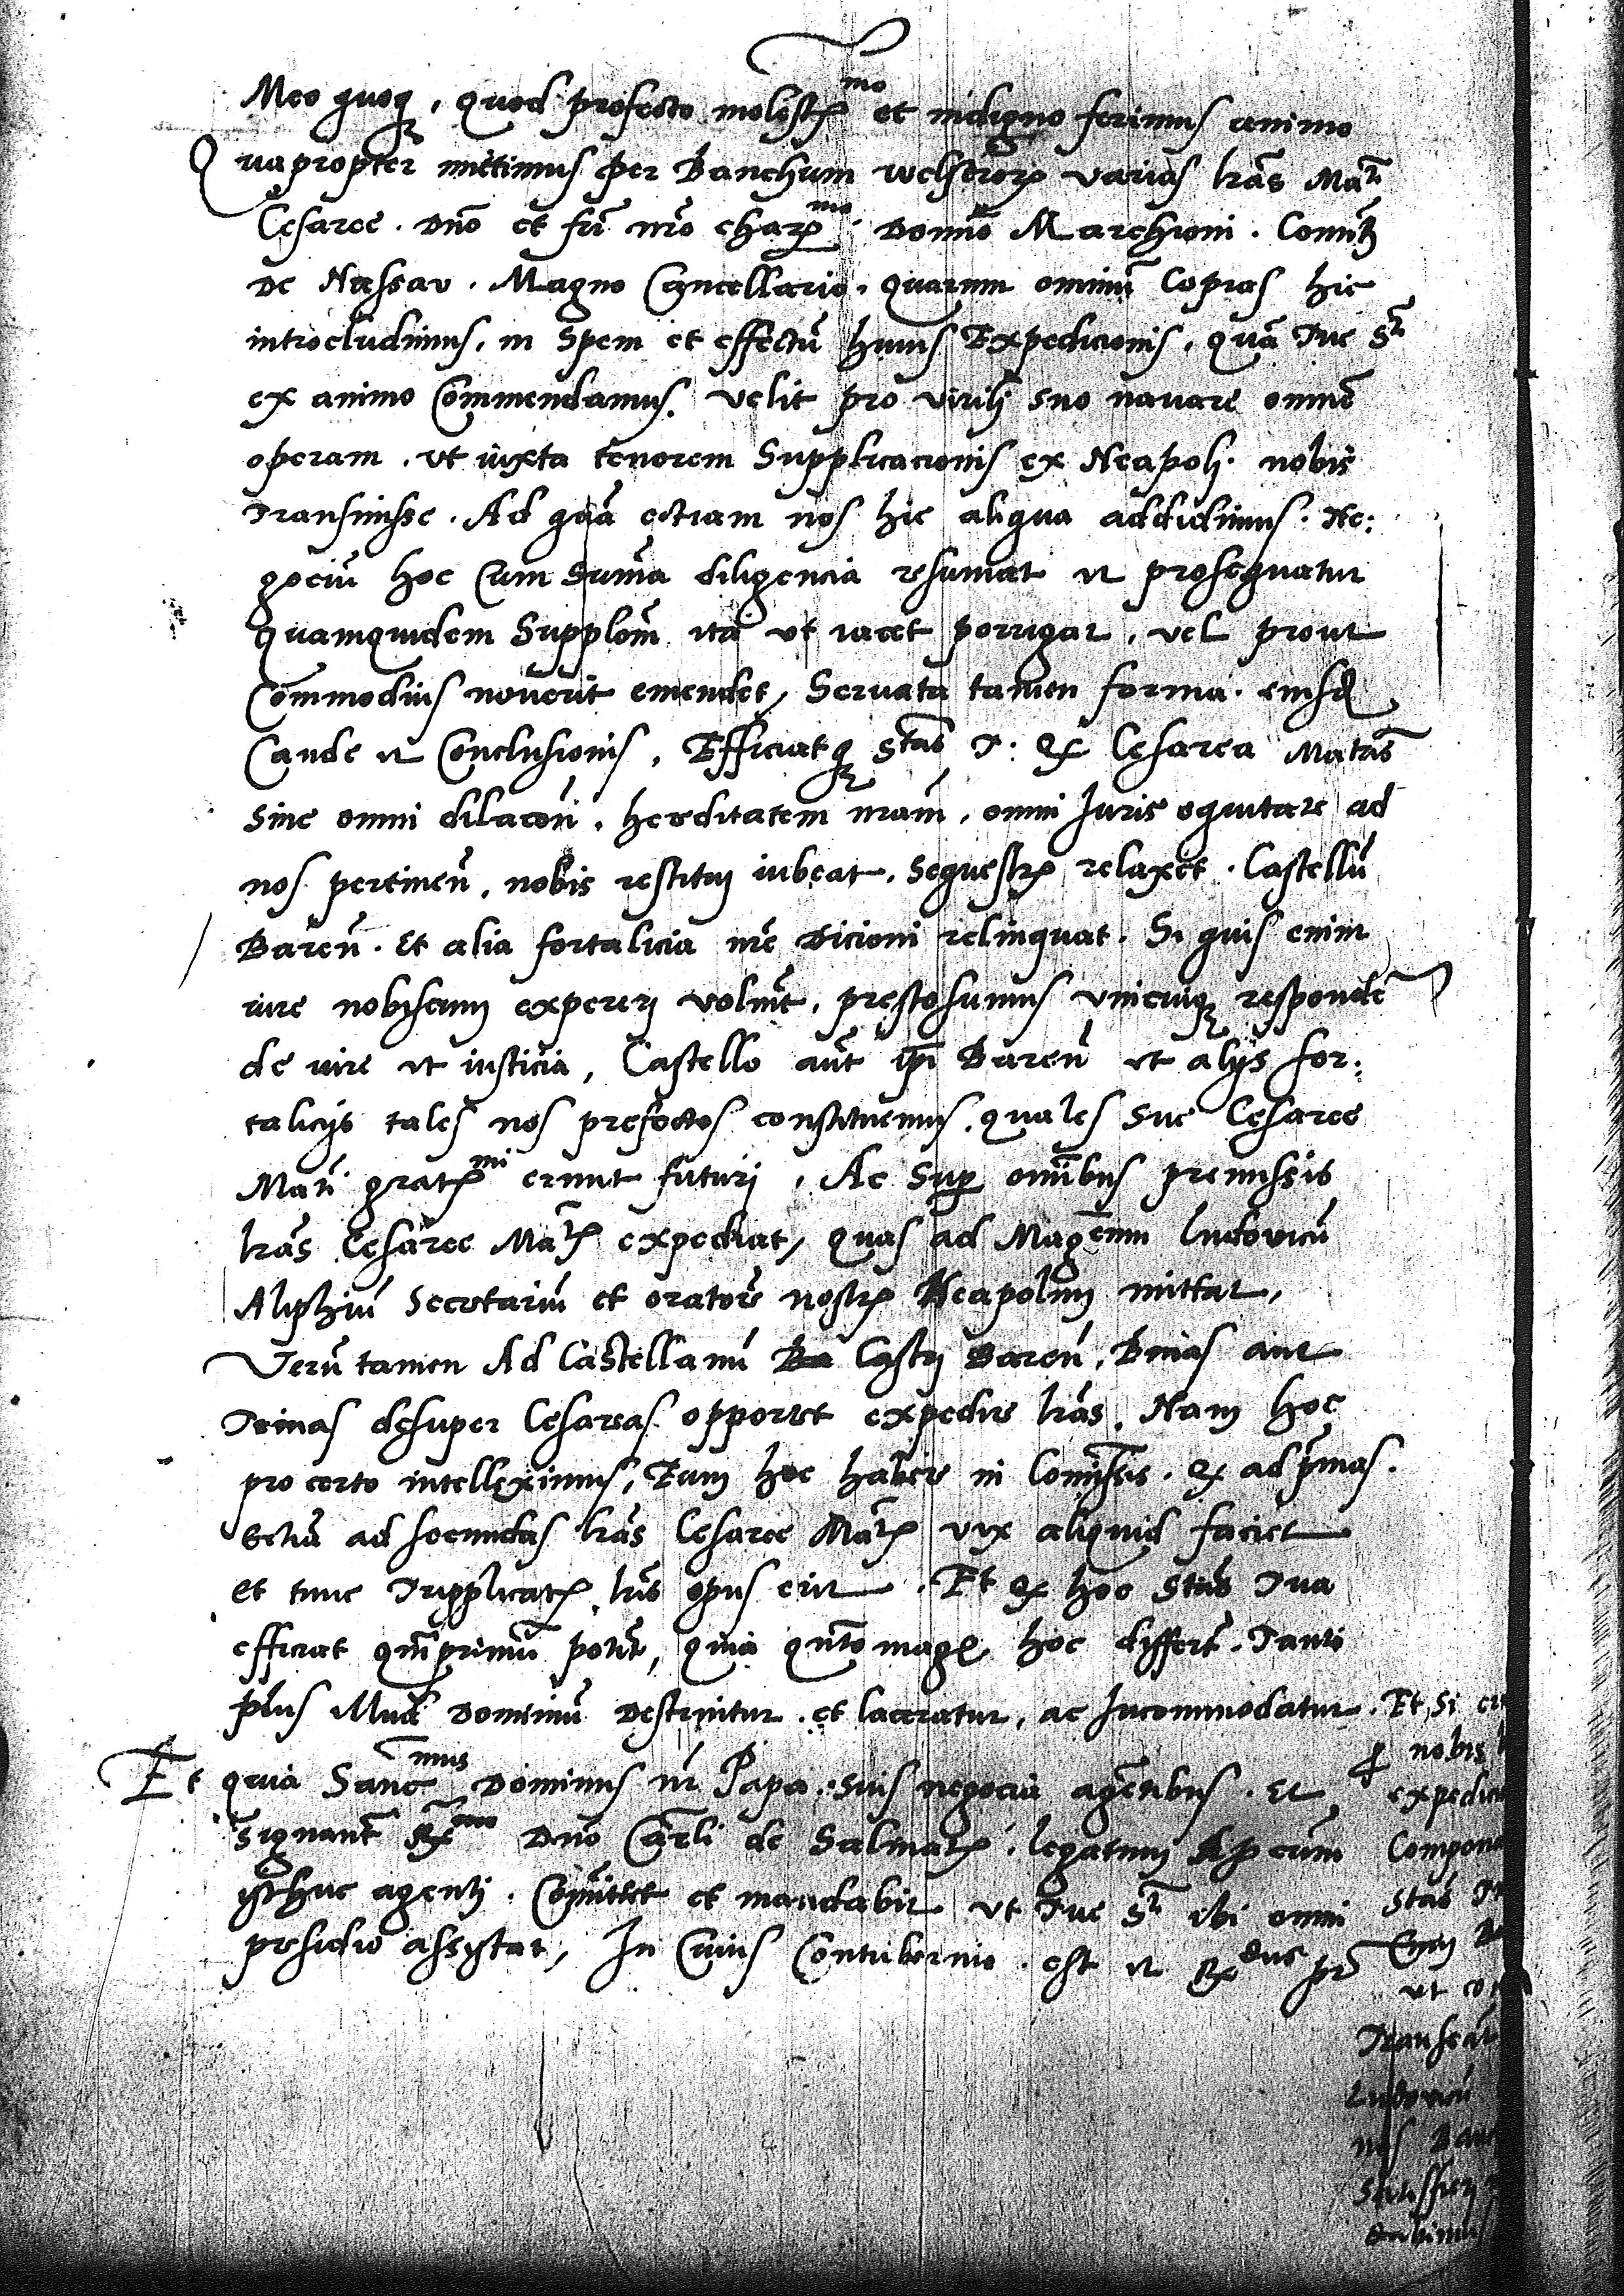 Meo quoq, quod profecto molestmo et indigno ferimus animo
Quapropter mittimus per Banchum welseror varias lras Mati
Cesaree. Dno et fri nro charmo. Domino Marchioni. Comiti
de Nassau. Magno Cancellario. quarum omniu Copias hic
introcludimus, in Spem et effectu huius Expedicionis, qua Tue Sti
ex animo Commendamus. velit pro virili suo nauare omne
operam, vt iuxta tenorem Supplicacionis ex Neapoli nobis
transmisse. Ad qua etiam nos hic aliqua addidimus. Ne:
gociu hoc Cum Suma diligencia resumat et prosequatur
quamquidem Supplom ita vt iacet porrigat, vel prout
Commodius nouerit emendet, Seruata tamen forma. eiusd
Cande et Conclusionis, Efficiatq Stas T: q Cesarea Matas
Sine omni dilacon, hereditatem nram, omni Juris equitate ad
nos pertinen, nobis restitui iubeat, Sequestr relaxet. Castellu
Baren. Et alia fortalicia nre Dicioni relinquat. Si quis enim
iure nobiscum experiri voluit, prestosumus vnicuiq responde
de iure et iusticia, Castello aut ipi Baren et alijs for:
talicijs tales nos prefectos constituemus, quales Sue Cesaree
Mati gratmi erunt futuri, Ac Super omibus premissis
lras Cesaree Matis expediat, quas ad Magcum Ludouicu
Aliphiu Secretariu et oratore nostr Neapolim mittat,
Veru tamen Ad Castellanu Ba Castri Baren, Binas aut
Trinas desuper Cesareas opportet expedire lras, Nam hoc
pro certo intelleximus, Eum hoc habere in Comissis. q ad pmas.
Ectia ad secundas lras Cesaree Matis vix aliquid faciet
et tunc Tripplicat, lris opus erit. Et q hoc Stas Tua
efficiat qmprimu poterit, quia qnto mag hoc differt. Tanto
plus Illud Dominiu Destruitur. et laceratur, ac Incommodatur.
Et quia Sancmus Dominus nr Papa. Suis negocia agentibus. Et
signant Rmo Dno Carli de Salmat, legatum Ap cum
isthuc agenti. Comittet et mandabit vt Tue Sti ibi omni
presidio assistat, In Cuius Contubernio. est et Rdus pr
Et, Si
nobis
expedi
Compon
Stas
ut
Transeat
Ludouicu
nos